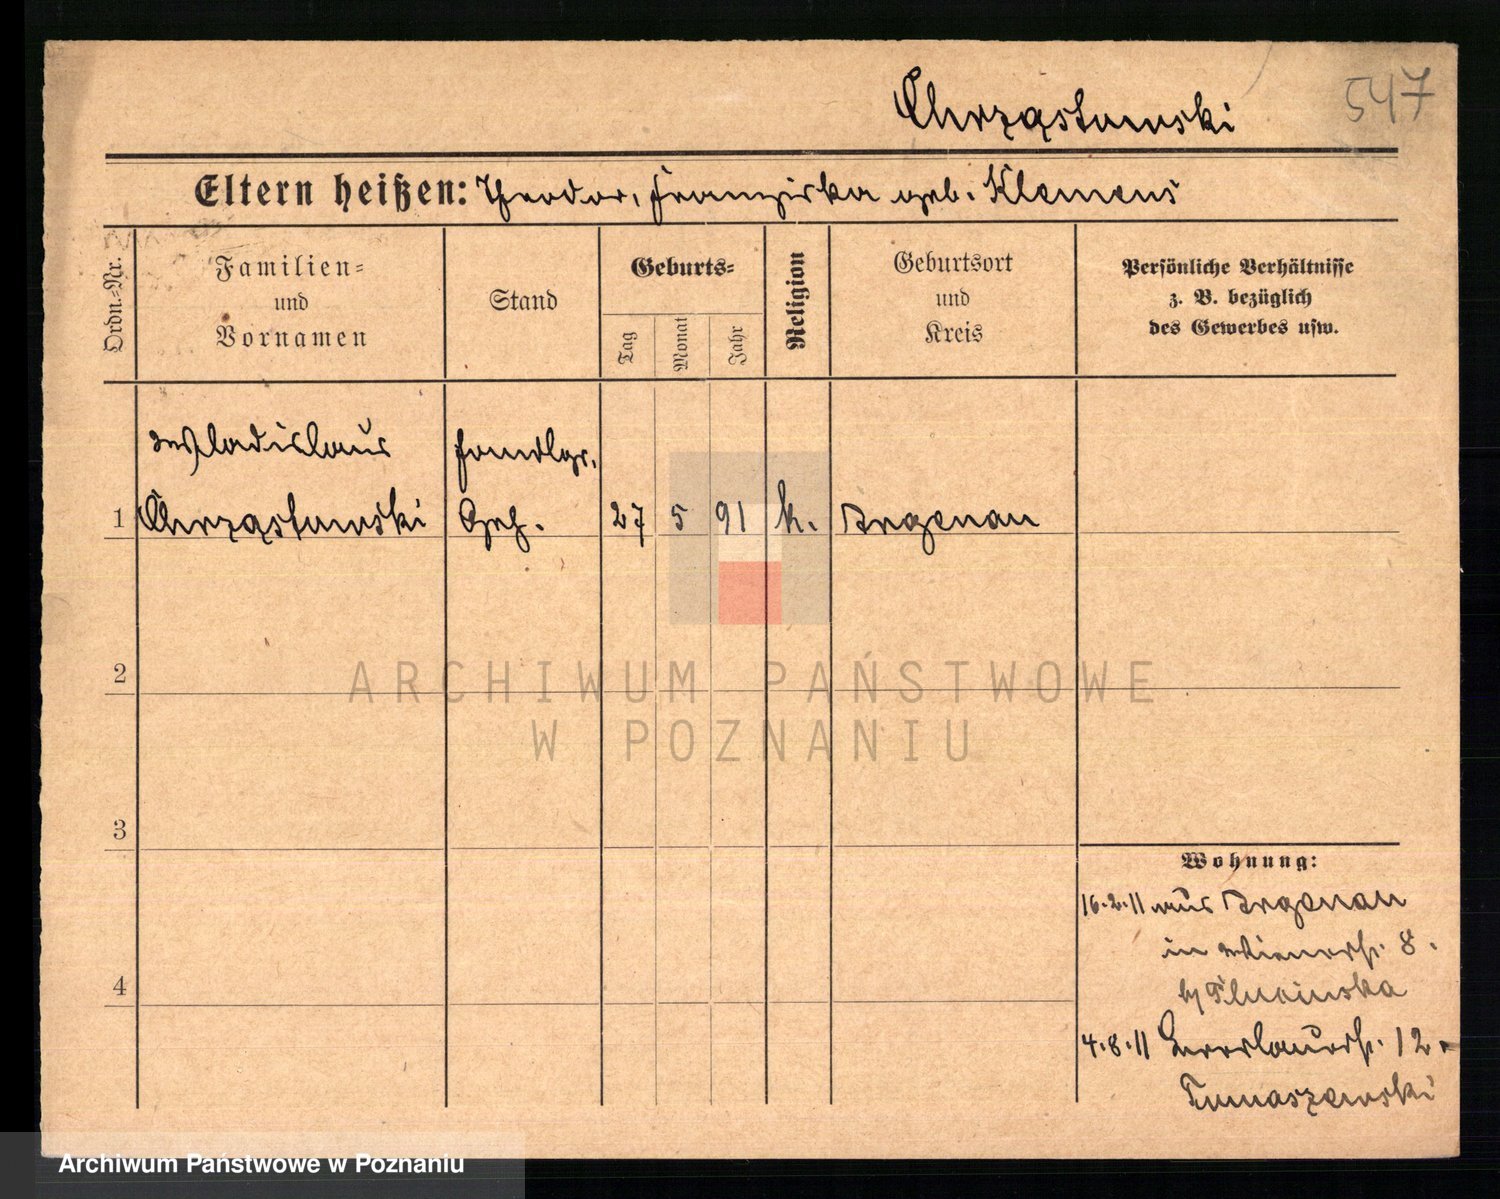 Chrząstowski 547
Eltern heißen: Theodor, Franziska geb. Klemens
Ordn.-Nr.
Familien-
und
Vornamen
Stand
Geburts-
Tag
Monat
Jahr
Religion
Geburtsort
und
Kreis
Persönliche Verhältnisse
z. B. bezüglich
des Gewerbes usw.
Wladislaus Handlgs.
1 Chrząstowski Geh. 27 5 91 k. Argenau
2
ARCHIWUM PAŃSTWOWE
W POZNANIU
3
Wohnung:
16.2.11 aus Argenau
in 8.
4
4.8.11 12
Tomaszewski
Archiwum Państwowe w Poznaniu